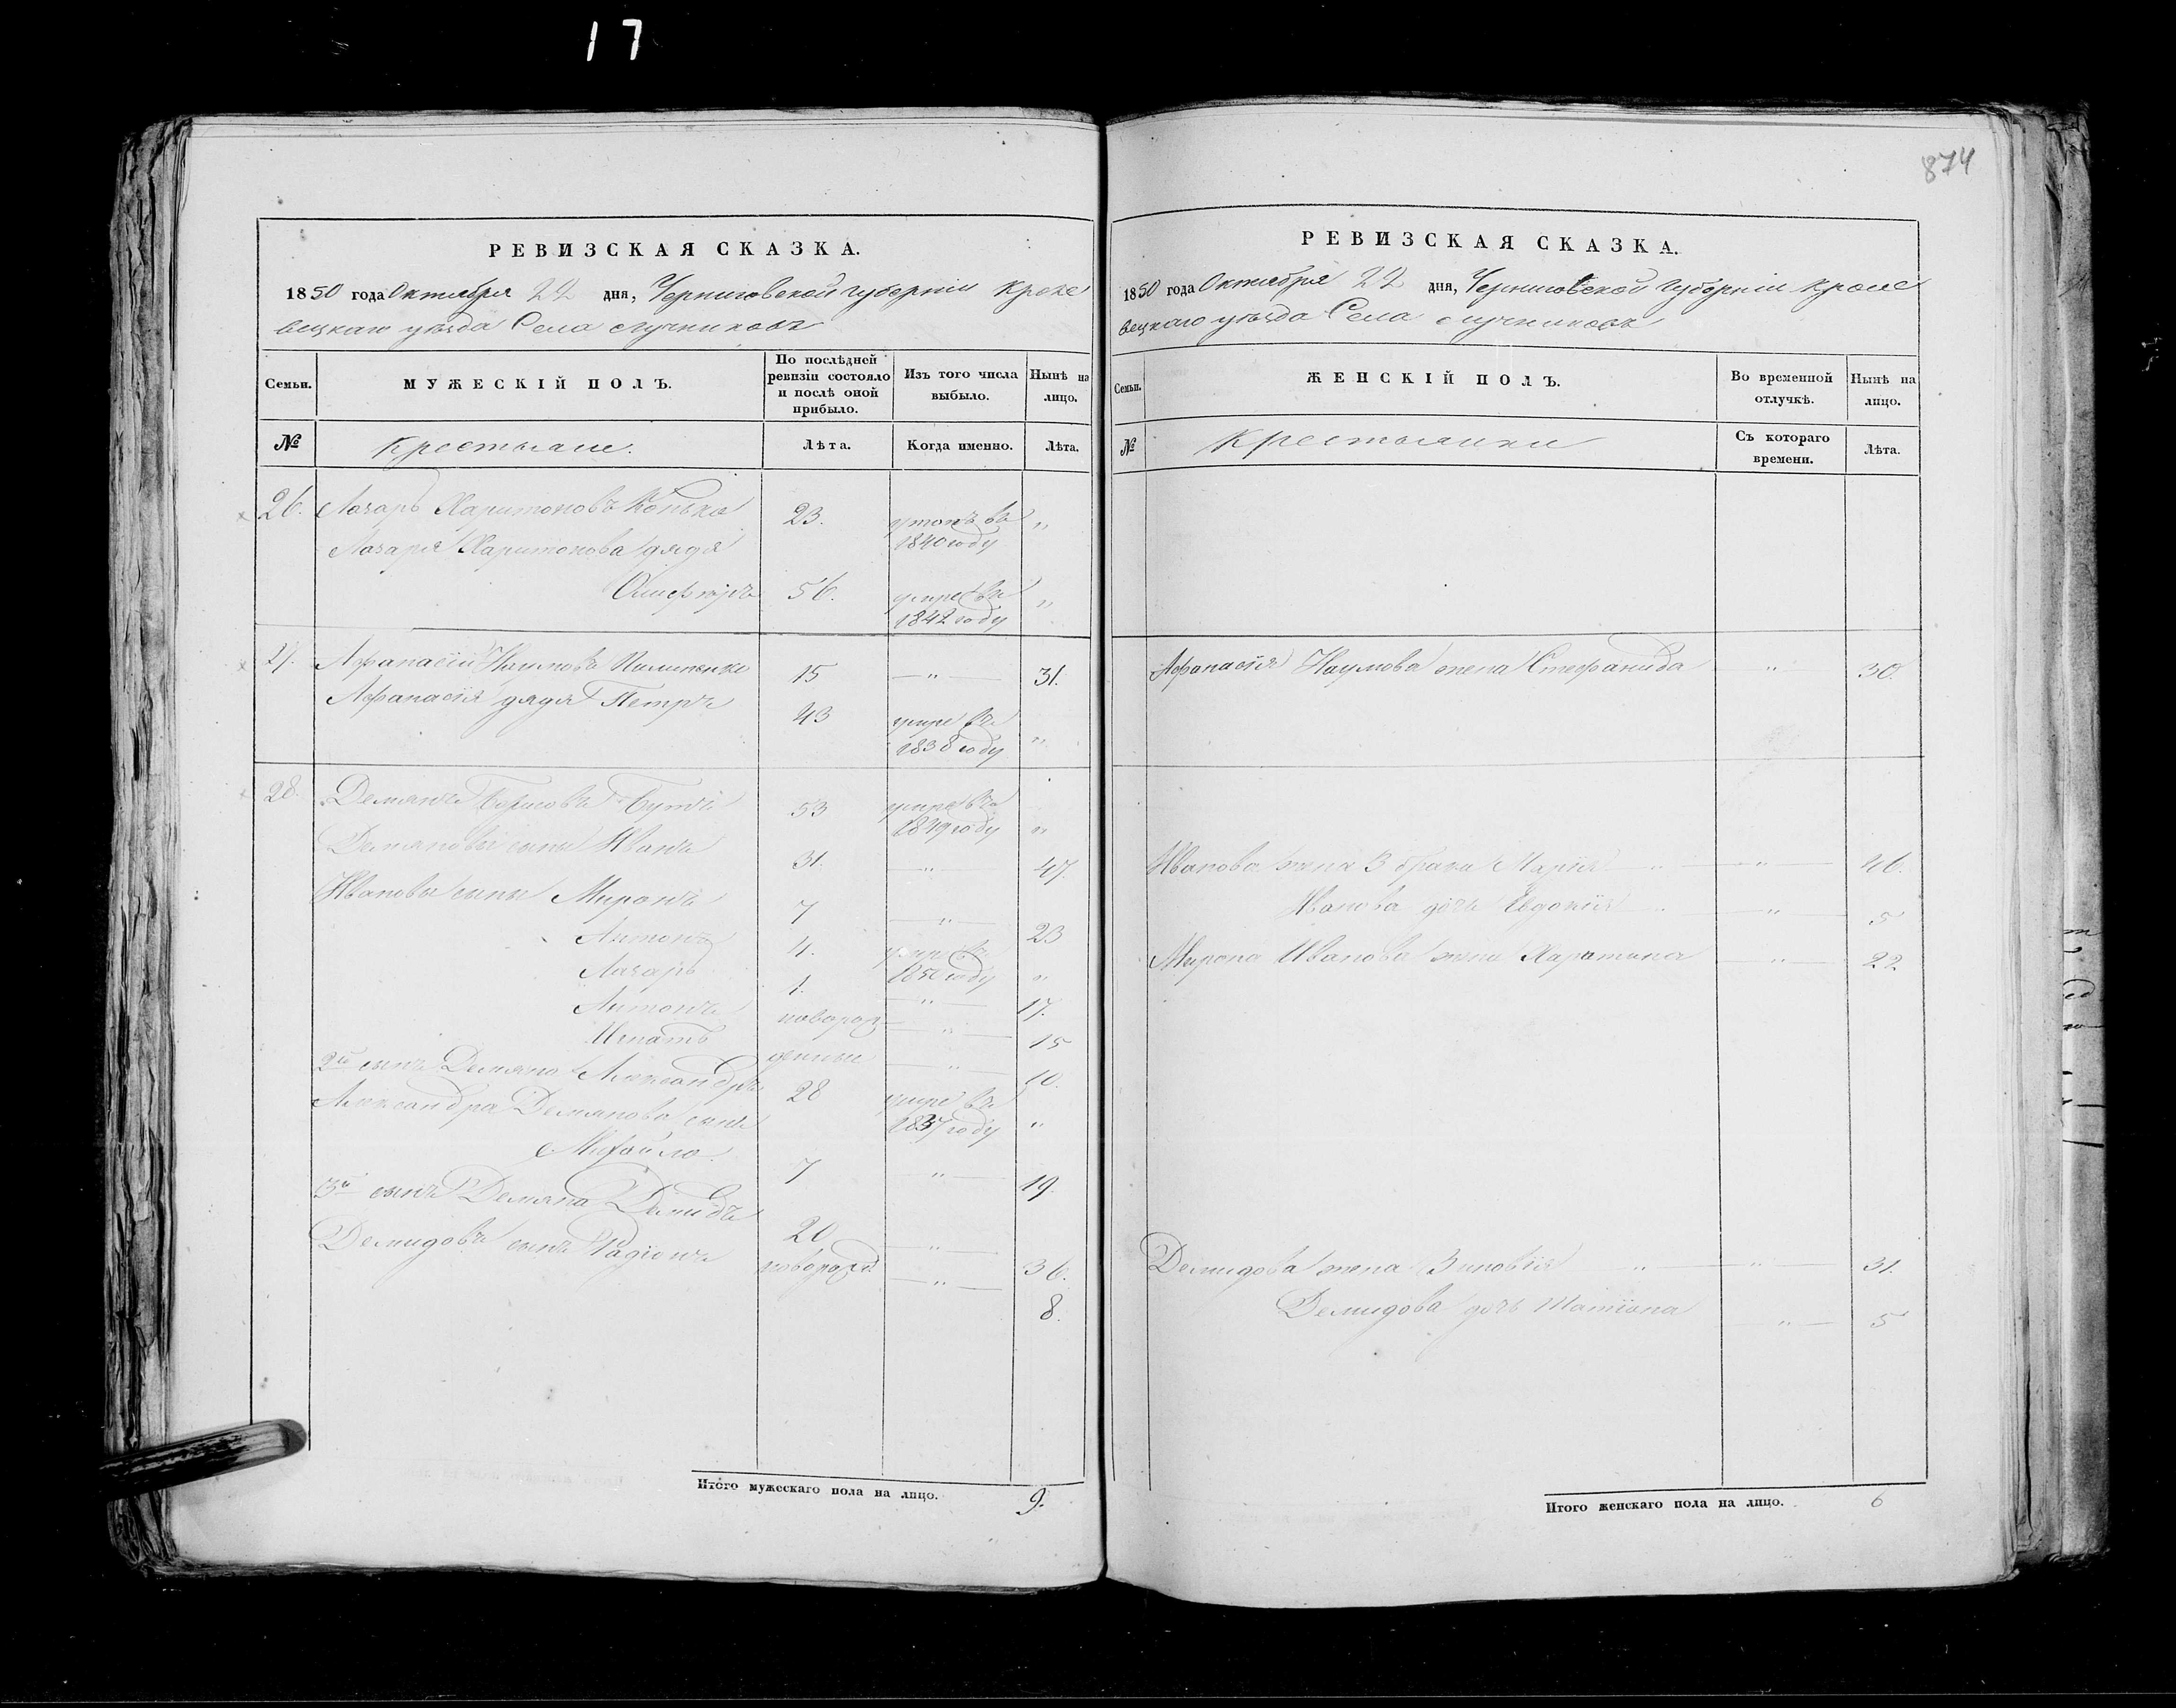 17
РЕВИЗСКАЯ СКАЗКА.
1850 года Октября 22 дня, Черниговской губерніи Кроле
вецкаго уѣзда Села Лучниковъ
Семьи.
МУЖЕСКІЙ ПОЛЪ.
По послѣдней
ревизіи состояло
и послѣ оной
прибыло.
Изъ того числа
выбыло.
Нынѣ на
лицо.
№
Крестьяне.
Лѣта.
Когда именно.
Лѣта.
26. Лазарь Харитоновъ 23. 1840 году „
Лазаря Харитонова дядя
56. умре въ „
1842 году
27. Афанасій Наумовъ Пилипенко 15 „ 31.
Афанасія дядя Петръ 43 умре въ „
1838 году
28. Демянъ Борисовъ 53 умре въ „
1849 году
Демяновы сыны Иванъ 31. „ 47.
Ивановы сыны Миронъ 7 „ 23
Антонъ 4. умре въ „
Лазарь 1. 1850 году „ 17.
Антонъ новорож „ 15
Игнатъ денные „ 10.
2й сынъ Демяна Александръ 28 умре въ „
1837 году
Александра Демянова сынъ
Михайло. 7 „ 19.
3й сынъ Демяна Демидъ 20 „ 36.
Демидовъ сынъ Радіонъ новорожд „ 8.
Итого мужескаго пола на лицо. 9.
874
РЕВИЗСКАЯ СКАЗКА.
1850 года Октября 22 дня, Черниговской Губерніи Кроле
вецкаго уѣзда Села Лучниковъ
Семьи.
ЖЕНСКІЙ ПОЛЪ.
Во временной
отлучкѣ.
Нынѣ на
лицо.
№
Крестьянки
Съ котораго
времени.
Лѣта.
Афанасія Наумова жена Стефанида „ 30.
Иванова жена 3 брака Марія „ 46.
Иванова дочь Евдокія „ 5
Мирона Иванова жена Харитина „ 22
Демидова жена Зиновія „ 31.
Демидова дочь Татіана „ 5
Итого женскаго пола на лицо. 6